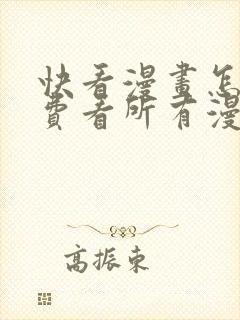 快看漫畫怎
費看所有漫
高振東